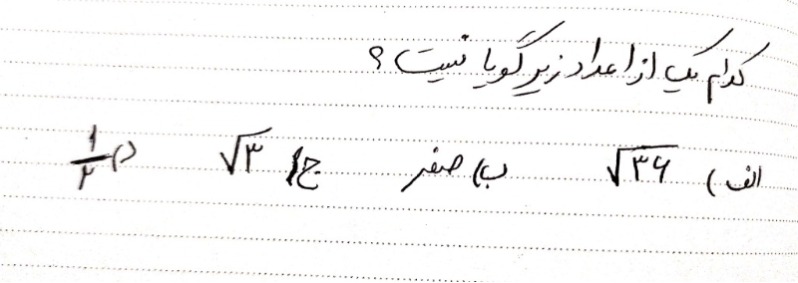 کدام یک از اعداد زیر گویا نیست ؟
الف) √۳۶ ب) صفر ج) √۳ د) ۱/۲